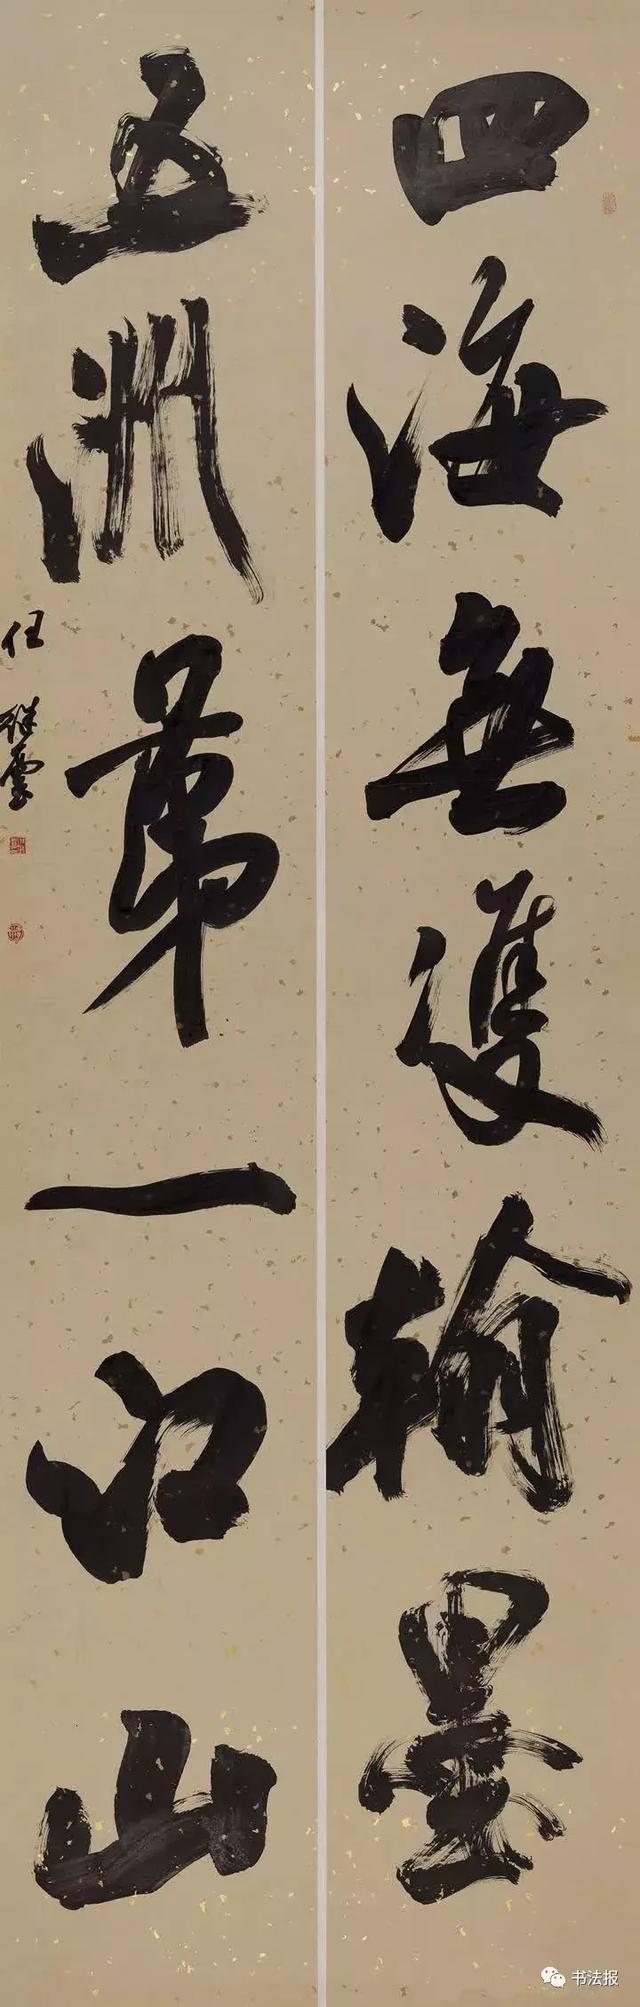 四海無雙翰墨
五洲第一江山
任繼雲
书法报